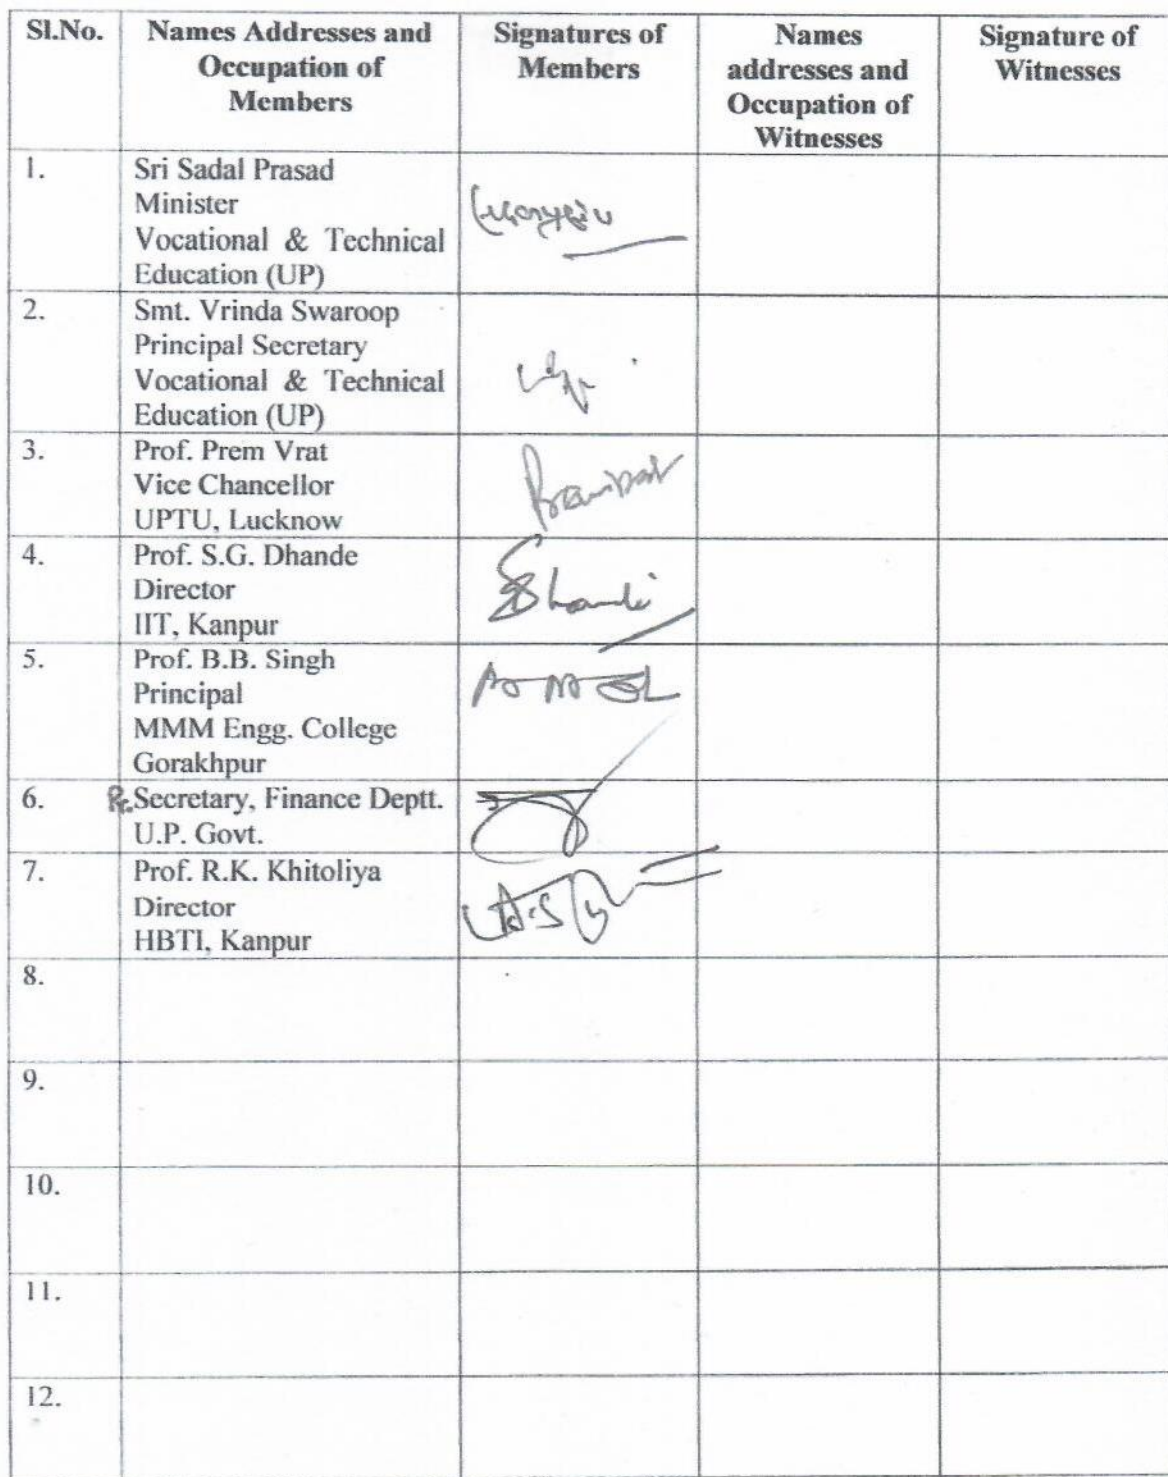 Sl.No. Names Addresses and Occupation of Members Signatures of Members Names addresses and Occupation of Witnesses Signature of Witnesses
1. Sri Sadal Prasad
Minister
Vocational & Technical
Education (UP)
2. Smt. Vrinda Swaroop
Principal Secretary
Vocational & Technical
Education (UP)
3. Prof. Prem Vrat
Vice Chancellor
UPTU, Lucknow
4. Prof. S.G. Dhande
Director
IIT, Kanpur
5. Prof. B.B. Singh
Principal
MMM Engg. College
Gorakhpur
6. Pr. Secretary, Finance Deptt.
U.P. Govt.
7. Prof. R.K. Khitoliya
Director
HBTI, Kanpur
8.
9.
10.
11.
12.